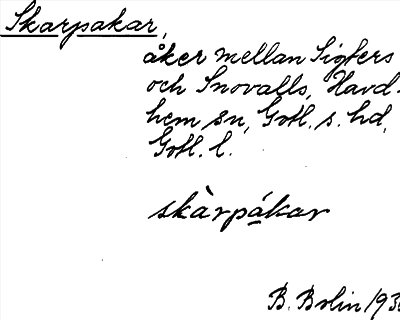 Skarpakar,
åker mellan Sigfers
och Snovalls, Havd-
hem sn, Gotl. s. hd,
Gotl. l.
skàrpákar
B. Bolin